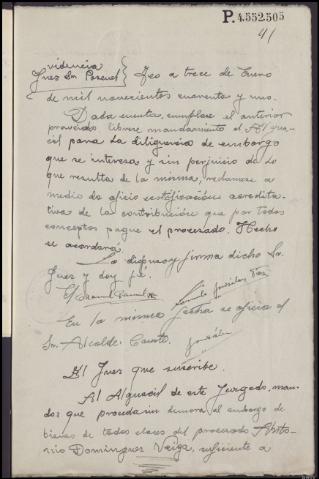 P.4.552.505
41
videncia
Juez Sr. Pascual } Feo a trece de Enero
de mil novecientos cuarenta y uno.
Dada cuenta, cumplase el anterior
proveido librese mandamiento al Algua-
cil para la diligencia de embargo
que se interesa y sin perjuicio de lo
que resulta de la misma, reclamese a
medio de oficio certificación acredita-
tiva de la contribución que por todos
conceptos pague el procesado. Hecho
se acordará.
Lo dispuso y firma dicho Sr.
Juez y doy fé.
En la misma fecha se oficia al
Sr. Alcalde.
El Juez que suscribe.
Al Alguacil de este Juzgado, man-
dos que proceda sin demora al embargo de
bienes de todas clases del procesado
Dominguez Veiga, suficiente a